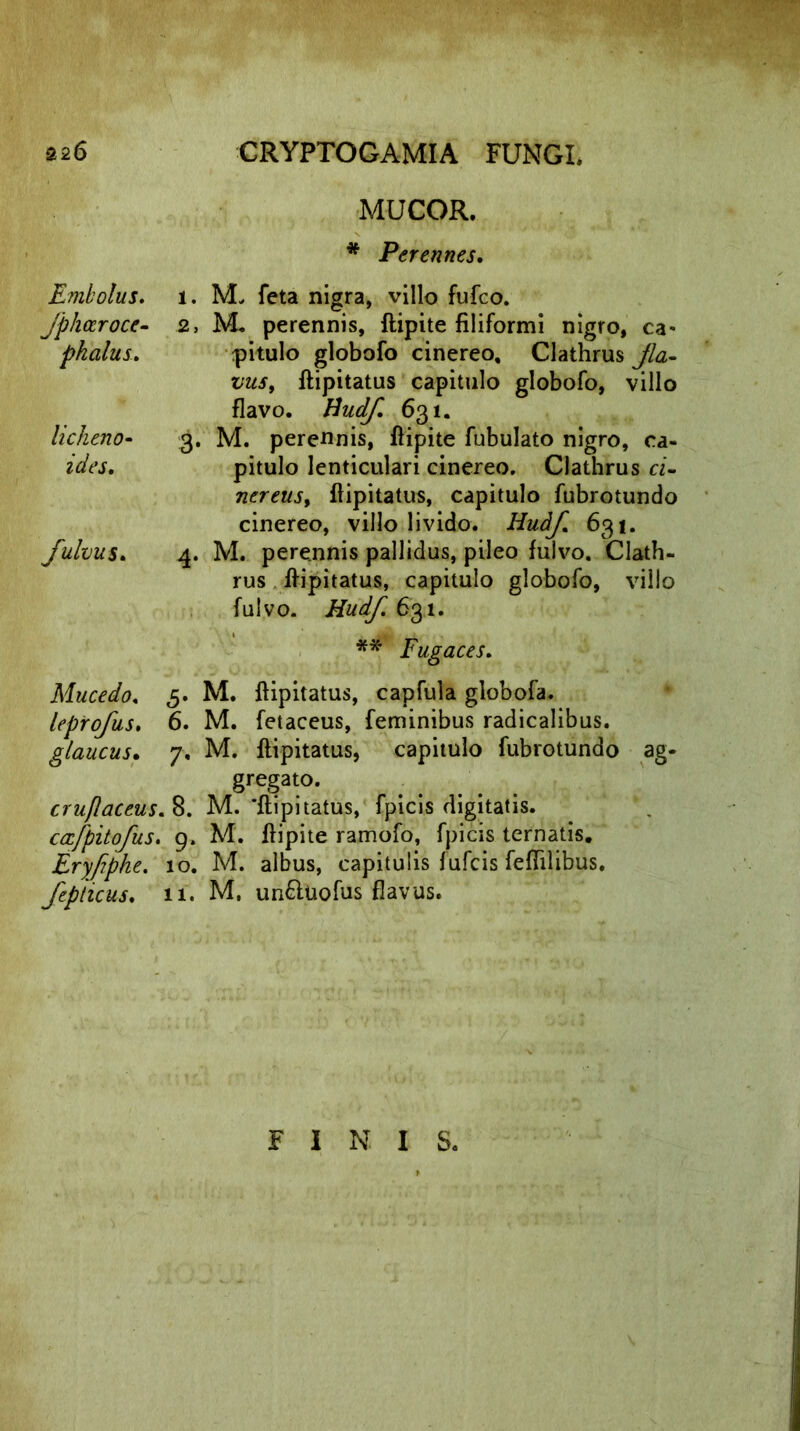 226 CRYPTOGAMIA FUNGI.
MUCOR.
* Perennes.
Embolus. 1. M. ſeta nigra, villo fuſco.
ſphæroce- 2, M. perennis, ſtipite filiformi nigro, ca-
phalus. pitulo globoſo cinereo. Clathrus fla-
vus, ſtipitatus capitulo globoſo, villo
flavo. Hudſ. 631.
licheno- 3. M. perennis, ſtipite ſubulato nigro, ca-
ides. pitulo lenticulari cinereo. Clathrus ci-
nereus, ſtipitatus, capitulo ſubrotundo
cinereo, villo livido. Hudſ. 631.
fulvus. 4. M. perennis pallidus, pileo fulvo. Clath-
rus ſtipitatus, capitulo globoſo, villo
fulvo. Hudſ. 631.
** Fugaces.
Mucedo. 5. M. ſtipitatus, capſula globoſa.
leproſus. 6. M. ſetaceus, ſeminibus radicalibus.
glaucus. 7. M. ſtipitatus, capitulo ſubrotundo ag-
gregato.
cruſtaceus. 8. M. ſtipitatus, ſpicis digitatis.
cæſpitoſus. 9. M. ſtipite ramoſo, ſpicis ternatis.
Eryſiphe. 10. M. albus, capitulis fuſcis ſeſſilibus.
ſepticus. 11. M. unctuoſus flavus.
F I N I S.